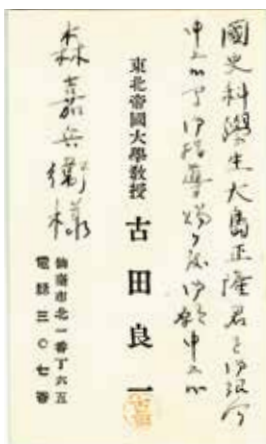 國史科學生大島正隆君を御紹介
申上候
御指導賜り度御願申上候
東北帝國大學教授
古田良一
森嘉兵衛様
仙臺市北一番丁六五
電話三〇七番